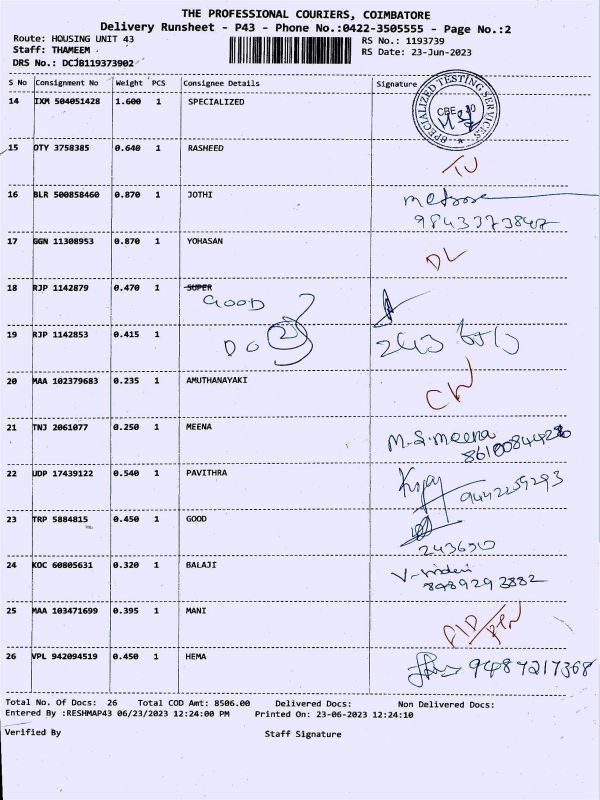 THE PROFESSIONAL COURIERS, COIMBATORE
Delivery Runsheet - P43 - Phone No.:0422-3505555 - Page No.:2
Route: HOUSING UNIT 43 RS No.: 1193739
Staff: THAMEEM RS Date: 23-Jun-2023
DRS No.: DCJB119373902
S No Consignment No Weight PCS Consignee Details Signature
14 IXM 504051428 1.600 1 SPECIALIZED
SPECIALIZED TESTING SERVICES
15 OTY 3758385 0.640 1 RASHEED
16 BLR 500858460 0.870 1 JOTHI
17 GGN 11308953 0.870 1 YOHASAN DL
18 RJP 1142879 0.470 1 SUPER
GOOD
19 RJP 1142853 0.415 1 DO
20 MAA 102379683 0.235 1 AMUTHANAYAKI
21 TNJ 2061077 0.250 1 MEENA M.S.Meena
22 UDP 17439122 0.540 1 PAVITHRA 9442259293
23 TRP 5884815 0.450 1 GOOD
24 KOC 60805631 0.320 1 BALAJI
8489293882
25 MAA 103471699 0.395 1 MANI
26 VPL 942094519 0.450 1 HEMA 9487217368
Total No. Of Docs: 26 Total COD Amt: 8506.00 Delivered Docs: Non Delivered Docs:
Entered By :RESHMAP43 06/23/2023 12:24:00 PM Printed On: 23-06-2023 12:24:10
Verified By Staff Signature